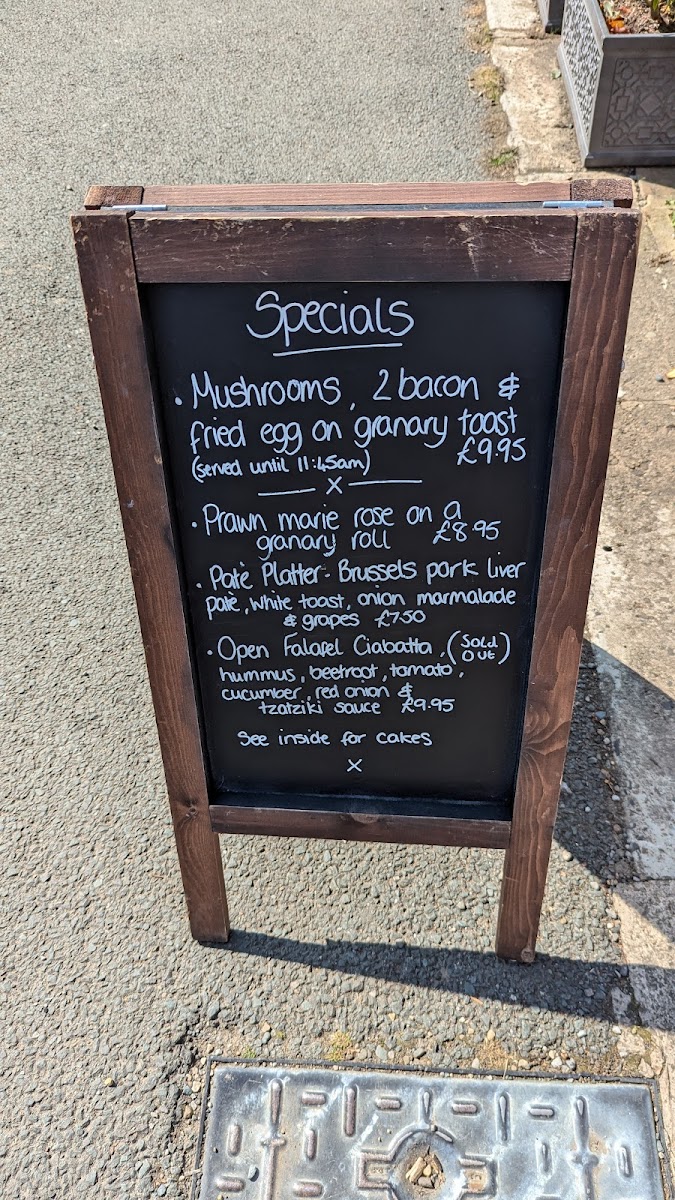 Specials
• Mushrooms, 2 bacon &
fried egg on granary toast
(served until 11:45am) £9.95
x
• Prawn marie rose on a
granary roll £8.95
• Patè Platter - Brussels pork liver
patè, white toast, onion marmalade
& grapes £7.50
• Open Falafel Ciabatta, (Sold Out)
hummus, beetroot, tomato,
cucumber, red onion &
tzatziki sauce £9.95
See inside for cakes
x